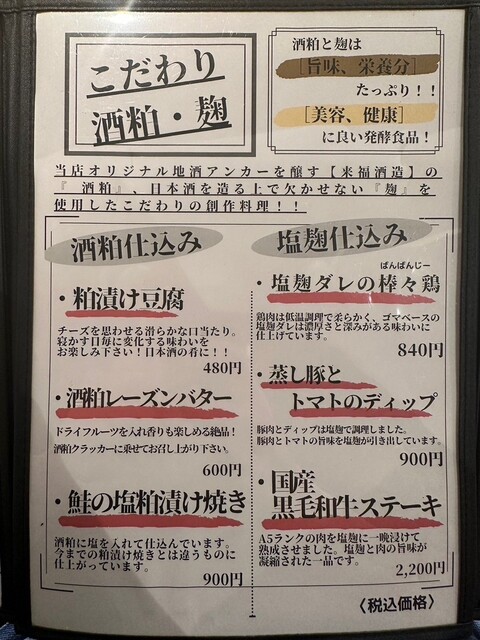 こだわり
酒粕・麹
酒粕と麹は
[旨味、栄養分]
たっぷり！！
[美容、健康]
に良い発酵食品！
当店オリジナル地酒アンカーを醸す【来福酒造】の
『 酒粕』、日本酒を造る上で欠かせない『麹』を
使用したこだわりの創作料理！！
酒粕仕込み
・粕漬け豆腐
チーズを思わせる滑らかな口当たり。
寝かす日毎に変化する味わいを
お楽しみ下さい！日本酒の肴に！！
480円
・酒粕レーズンバター
ドライフルーツを入れ香りも楽しめる絶品！
酒粕クラッカーに乗せてお召し上がり下さい。
600円
・鮭の塩粕漬け焼き
酒粕に塩を入れて仕込んでいます。
今までの粕漬け焼きとは違うものに
仕上がっています。
900円
塩麹仕込み
ばんばんじー
・塩麹ダレの棒々鶏
鶏肉は低温調理で柔らかく、ゴマベースの
塩麹ダレは濃厚さと深みがある味わいに
仕上げています。
840円
・蒸し豚と
トマトのディップ
豚肉とディップは塩麹で調理しました。
豚肉とトマトの旨味を塩麹が引き出しています。
900円
・国産
黒毛和牛ステーキ
A5ランクの肉を塩麹に一晩浸けて
熟成させました。塩麹と肉の旨味が
凝縮された一品です。
2,200円
〈税込価格〉